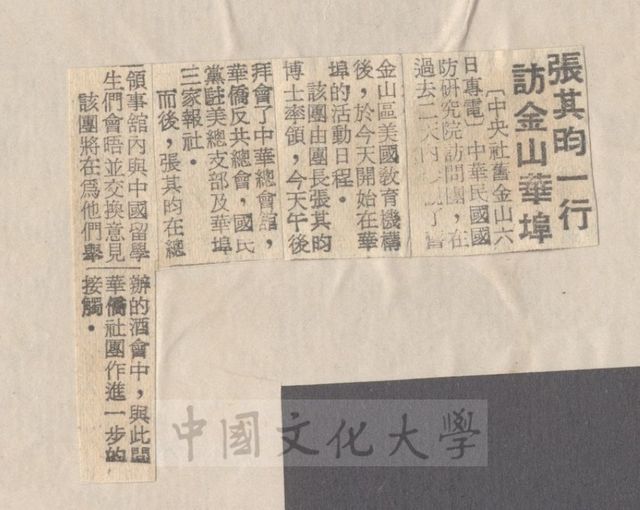 張其昀一行
訪金山華埠
〔中央社舊金山六
日專電〕中華民國國
防研究院訪問團，在
過去二天內
金山區美國教育機構
後，於今天開始在華
埠的活動日程。
該團由團長張其昀
博士率領，今天午後
拜會了中華總會館，
華僑反共總會，國民
黨駐美總支部及華埠
三家報社。
而後，張其昀在總
領事舘內與中國留學
生們會晤並交換意見
該團將在爲他們舉
辦的酒會中，與此間
華僑社團作進一步的
接觸。
中國文化大學